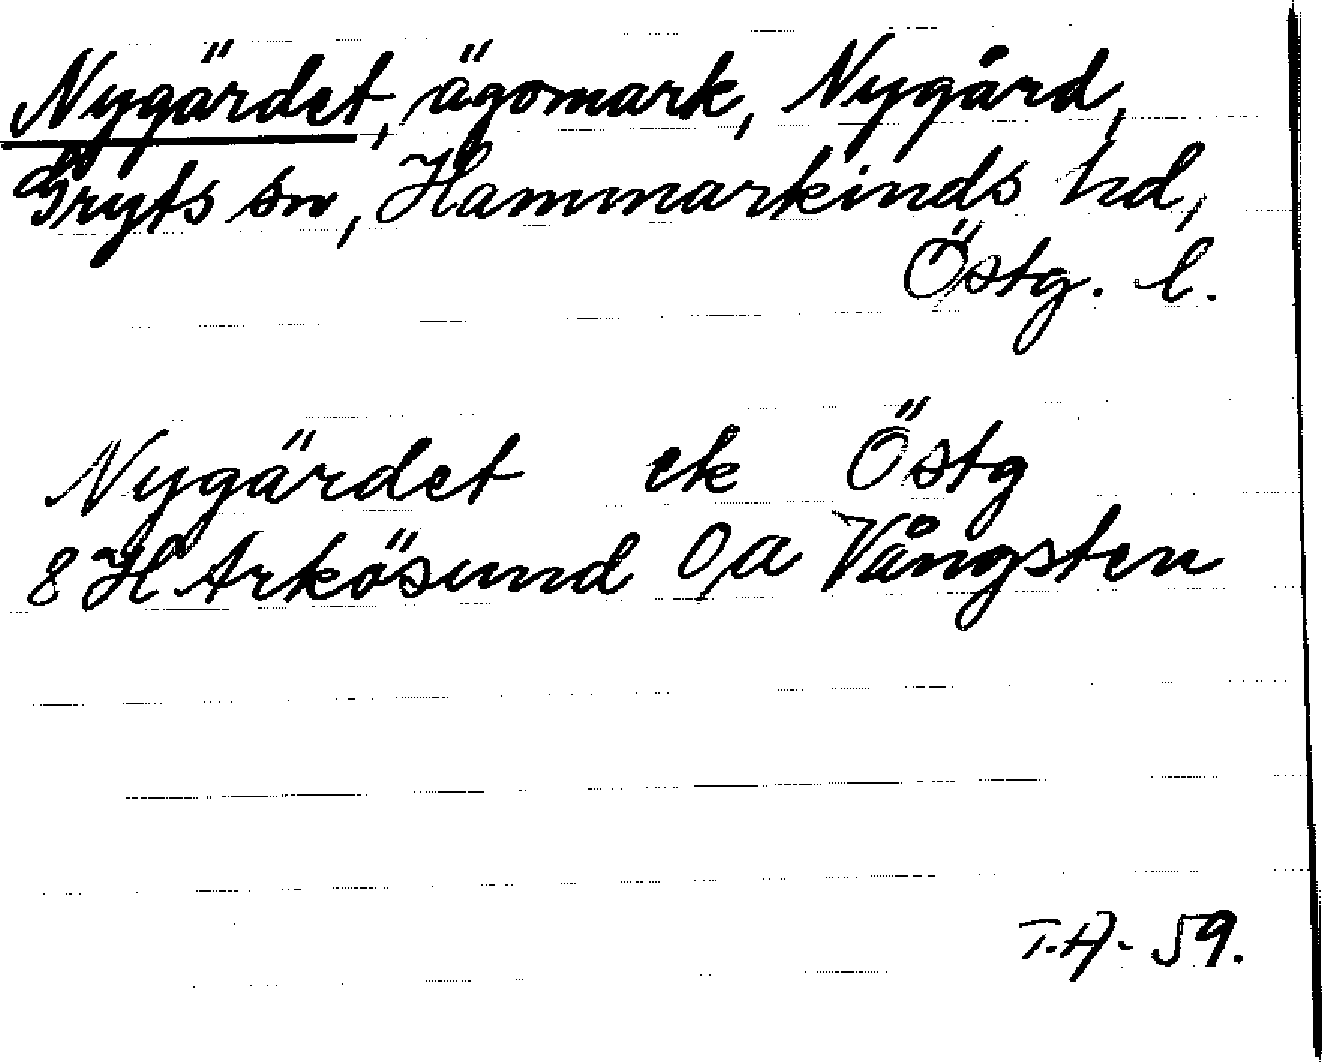 Nygärdet, ägomark, Nygård,
Gryts sn, Hammarkinds hd,
Östg. l.
Nygärdet ek Östg
8H Arkösund 0,a Vångsten
T.A- 59.